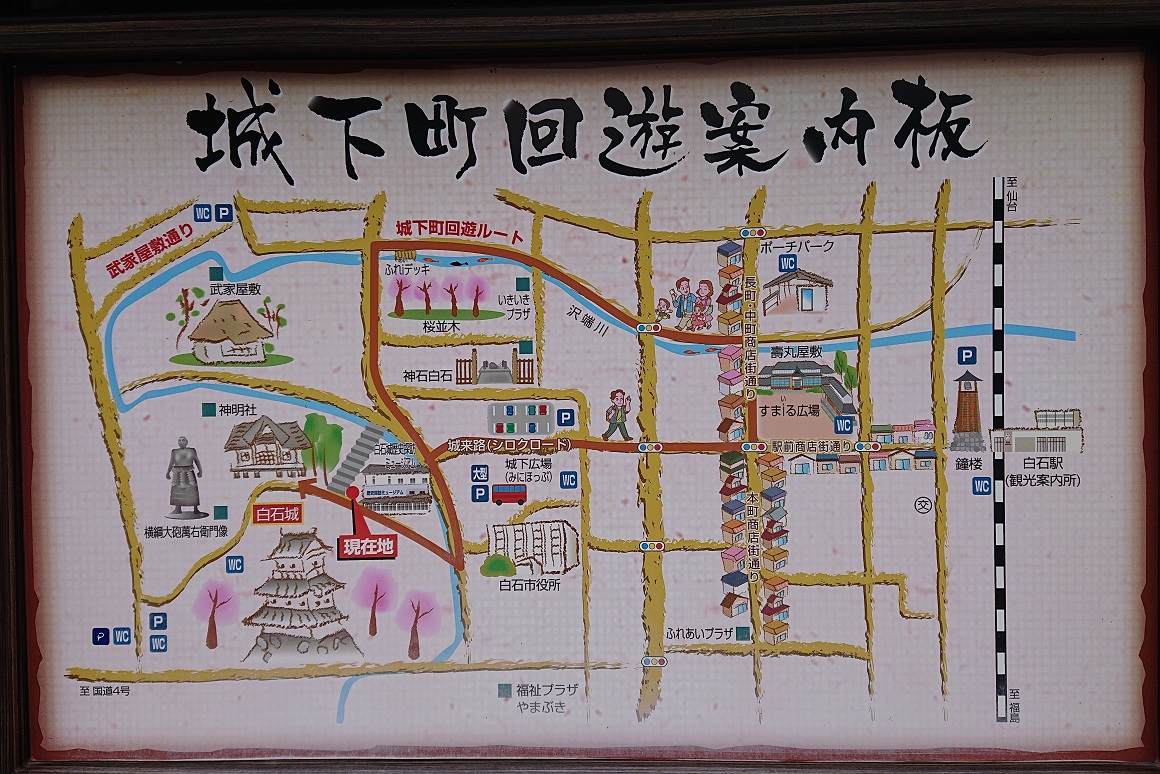 城下町回遊案内板
至 仙台
WC P
城下町回遊ルート
武家屋敷通り
ポーチパーク
WC
ふれデッキ
武家屋敷
いきいき
プラザ
長町・中町商店街通り
沢端川
桜並木
壽丸屋敷
P
神石白石
い
すまiる広場
神明社
P
WC
城来路(シロクロード)
駅前商店街通り
白石城歴史探訪
ミュージアム
城下広場
(みにぽっぷ)
大型
P
WC
鐘楼
白石駅
(観光案内所)
WC
歴史探訪ミュージアム
白石城
交
横綱大砲萬右衛門像
現在地
本町商店街通り
WC
白石市役所
P
P WC
WC
ふれあいプラザ
至 国道4号
福祉プラザ
やまぶき
至 福島